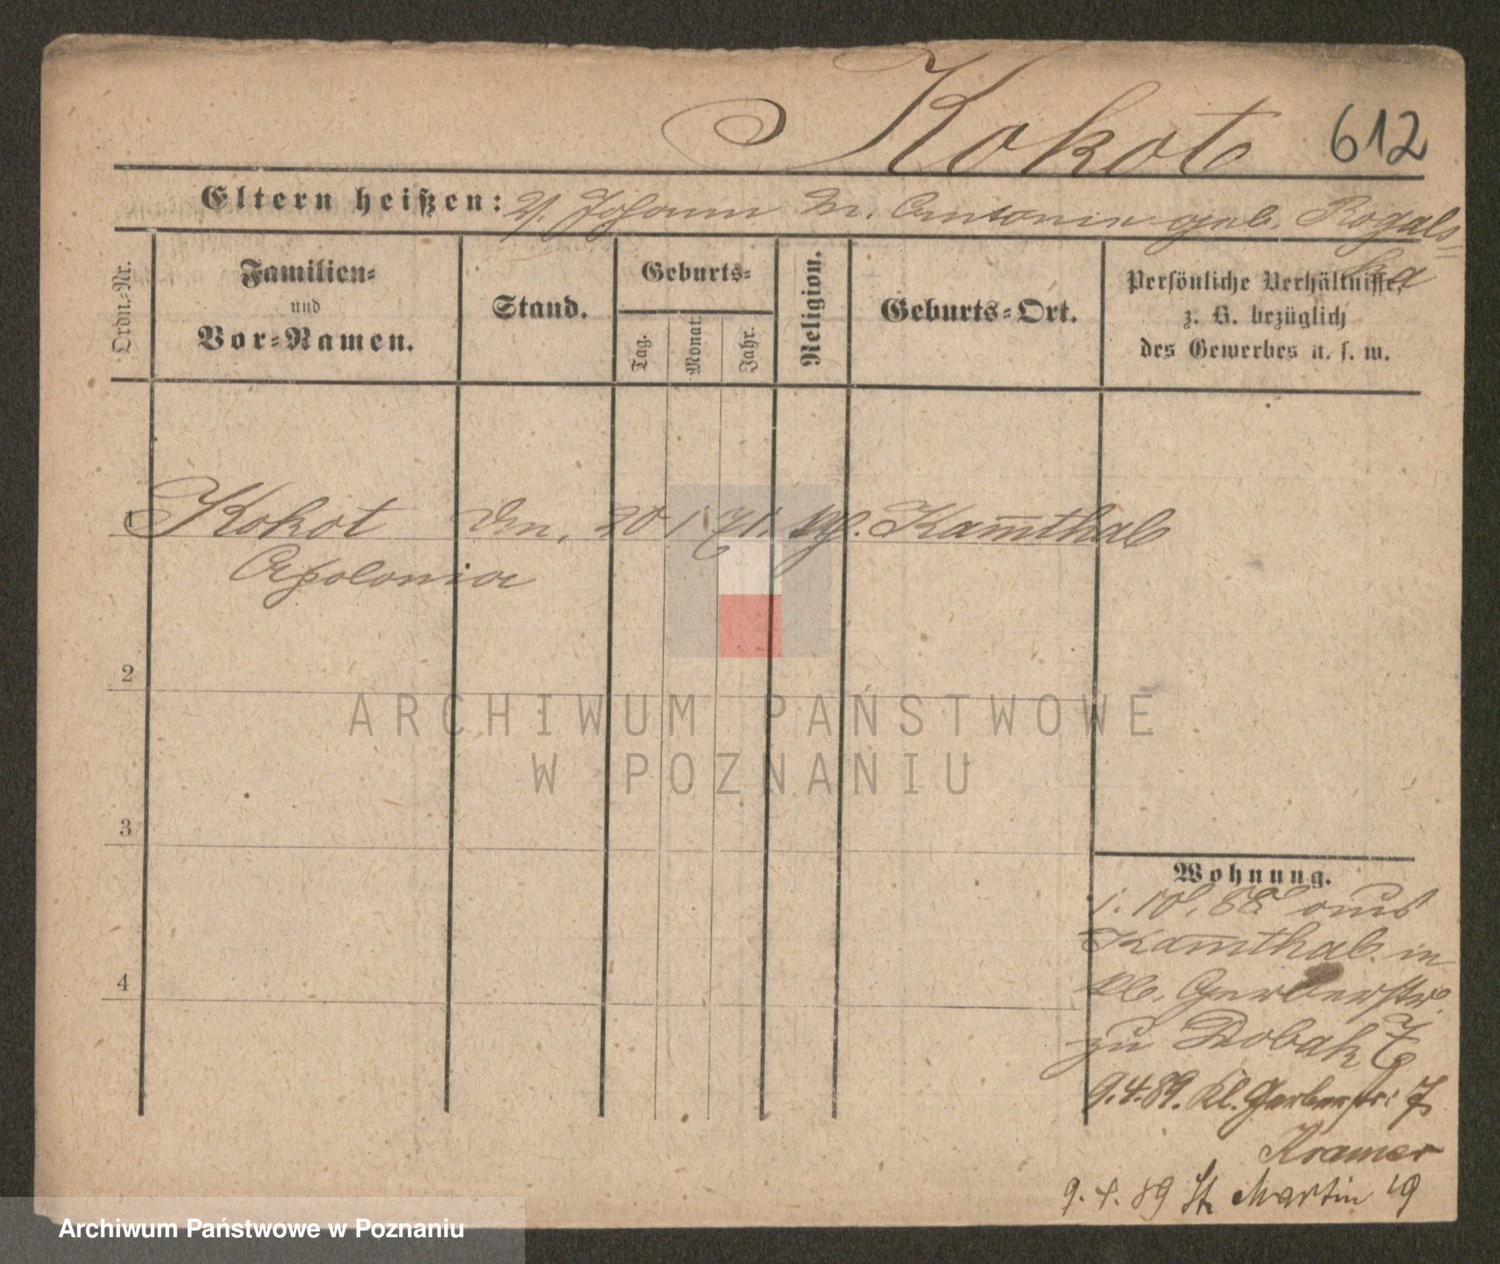 Kokot 612
Eltern heißen: V. Johann M. Antonie geb. Rogals-
ka
Ordn.-Nr.
Familien-
und
Vor-Namen.
Stand.
Geburts-
Tag.
Monat.
Jahr.
Religion.
Geburts-Ort.
Persönliche Verhältnisse,
z. B. bezüglich
des Gewerbes u. s. w.
1 Kokot 20 1 71. Kamthal
Apolonia
2
3
4
Wohnung.
1. 10. 88 aus
Kamthal in
Kl. Gerberstr.
zu Dobak 7
9.4.89. Kl. Gerberstr. 7
Kramer
9. 4. 89 St. Martin 19
ARCHIWUM PAŃSTWOWE
W POZNANIU
Archiwum Państwowe w Poznaniu